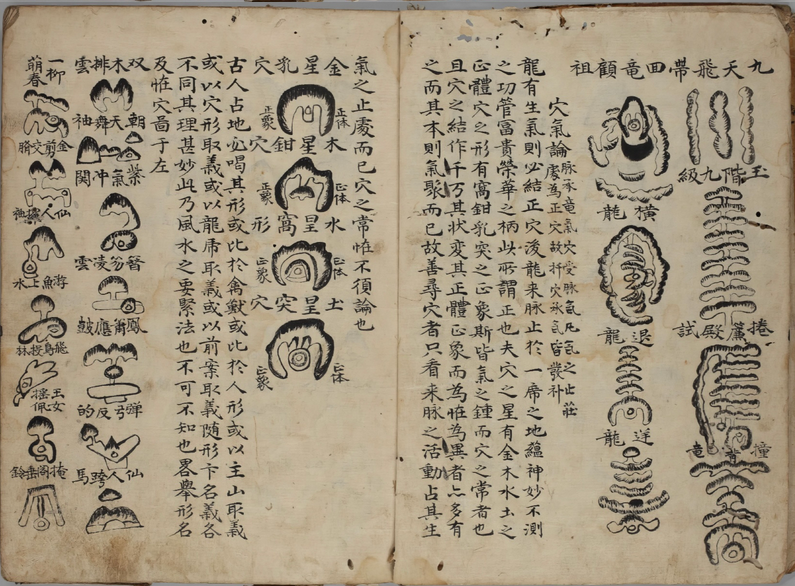 九天飛帶
玉階九級
捲簾殿試
回竜顧祖
橫龍
退龍
逆龍
穴氣論
龍有生氣則必結正穴後龍来脉止於一席之地蘊神妙不測
之功管富貴榮華之柄此所謂正也夫穴之星有金木水土之
正體穴之形有窩鉗乳突之正象斯皆氣之鍾而穴之常者也
且穴之結作千万其状変其正體正象而為恠為異者亦多有
之而其本則氣聚而已故善尋穴者只看来脉之活動占其生
氣之止處而已穴之常恠不須論也
金星乳穴
正体
正象
木星鉗穴
正体
正象
水星窩形
正体
正象
土星突穴
正体
正象
古人占地必喝其形或比於禽獸或比於人形或以主山取義
或以穴形取義或以龍席取義或以前案取義随形卞名義各
不同其理甚妙此乃風水之要緊法也不可不知也畧舉形名
及恠穴啚于左
双木排雲
朝天舞袖
紫氣冲関
簪笏凌雲
彈弓反的
仙人跨馬
一柳萌春
金剪交股
游魚上水
飛鳥投林
玉女搖佩
掩閣垂鈴